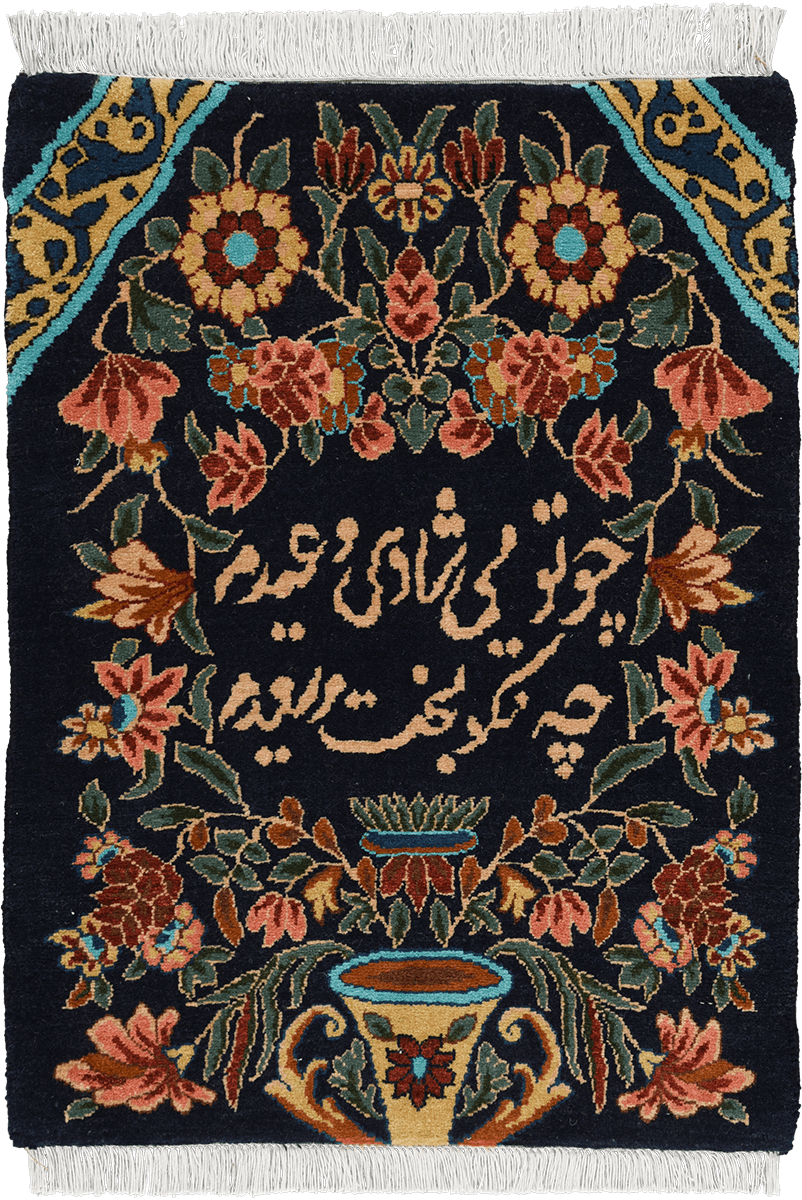 چو تویی شادی و عیدم
چه نکو بخت و سعیدم